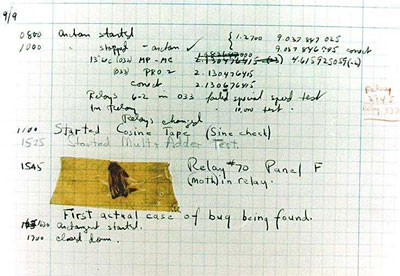 9/9
0800 antan started
1000 " stopped - antan ✓ { 1.2700 9.037 847 025
9.037 846 995 correct
13"uc (032) MP-MC 4.615925059(-2)
(033) PRO 2 2.130476415
correct 2.130676415
Relays 6-2 in 033 failed special speed test
in relay " 10,000 test.
Relays changed
1100 Started Cosine Tape (Sine check)
1525 Started Multi Adder Test.
1545 Relay #70 Panel F
(moth) in relay.
First actual case of bug being found.
antangent started.
1700 closed down.
Relay